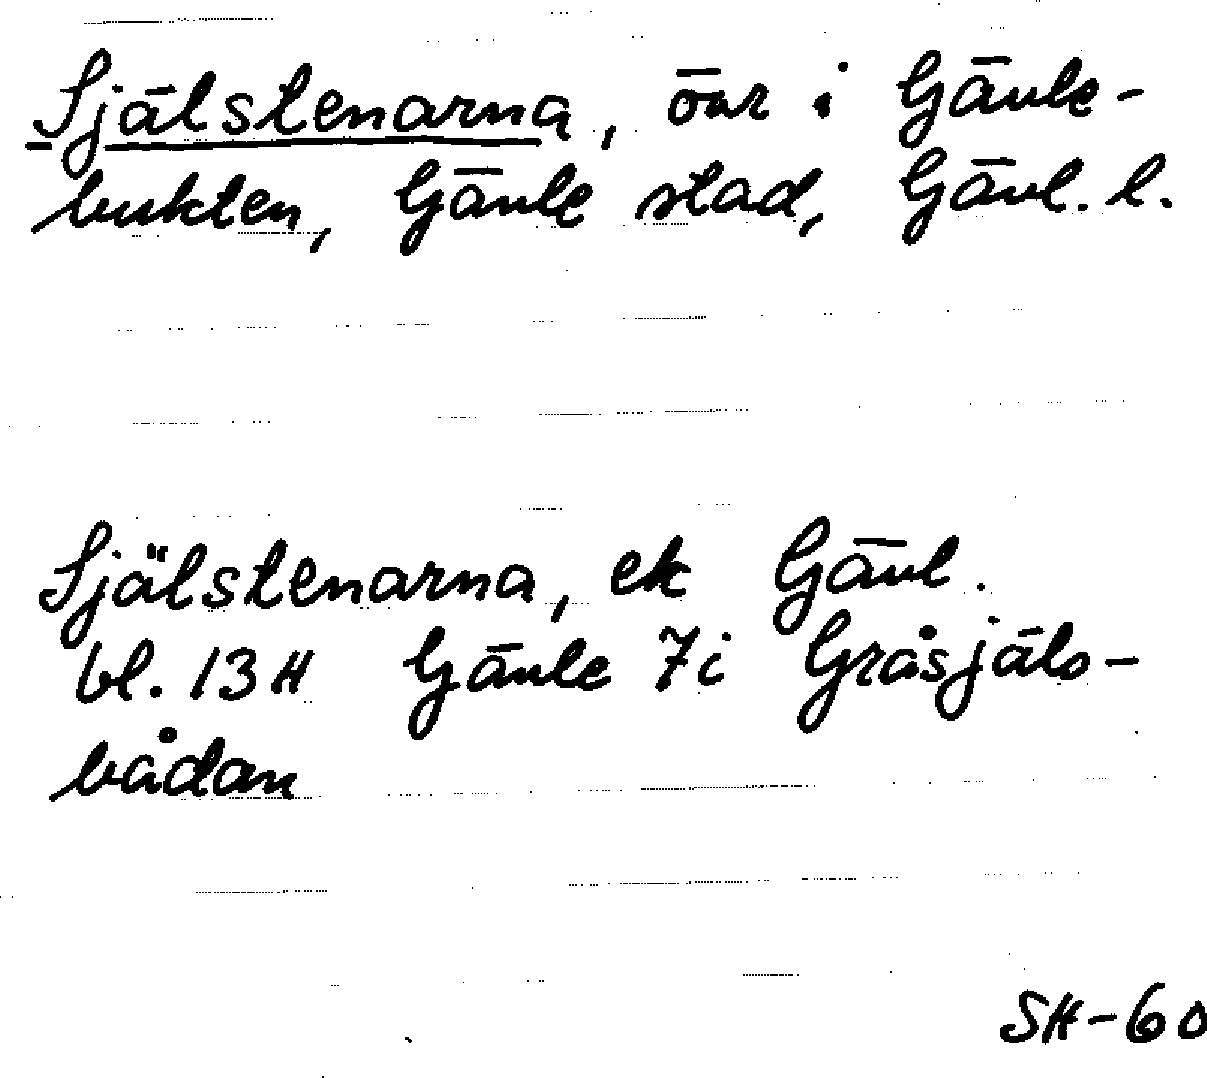 Själstenarna, öar i Gävle-
bukten, Gävle stad, Gävl. l.
Själstenarna, ek Gävl.
bl. 13H Gävle 7i Gråsjäls-
bådan
SH-60